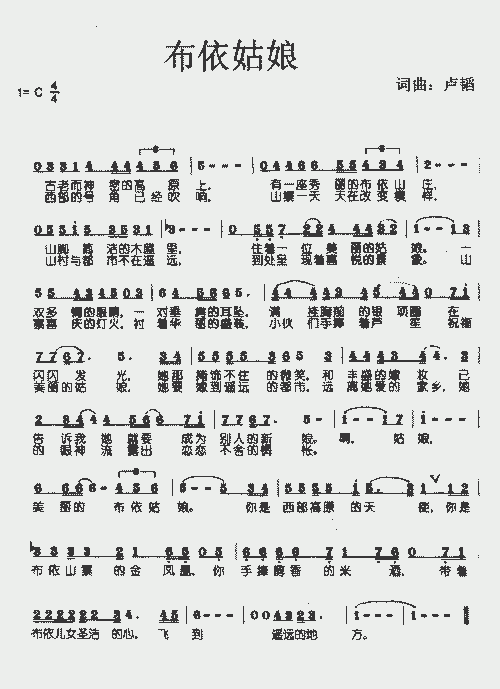 布依姑娘
1= C 4/4
词曲：卢韬
古老而神 的高 原 上， 有一座秀 丽的布依山 庄，
西部的号 角 已 经 吹 响， 山寨一天 天在改变模 样，
山脚 洁的木 里， 住着一 位 美 丽的姑 娘。一
山村与都 市不在遥 远， 到处呈 现着喜 悦的景 象。山
双多 情的眼睛，一 对垂 肩的耳坠， 满 挂胸前 的银 项圈 在
寨喜 庆的灯火，衬 着华 丽的盛装， 小伙 们手捧 着芦 笙 祝福
闪闪 发 光， 她那 掩饰不住 的微笑，和 丰盛的嫁 妆 已
美丽的姑 娘， 她要 嫁到遥远 的都市，远 离她爱的 家乡，她
告 诉我 她 就要 成为 别人的新 娘。 啊， 姑 娘，
的 眼神 流 露出 恋恋 不舍的惆 怅。
美 丽的 布 依姑 娘。 你是 西部高原 的天 使，你是
布依山寨 的金 凤凰。你 手捧醇香 的米 酒，带着
布依儿女圣洁 的心， 飞 到 遥远的地 方。